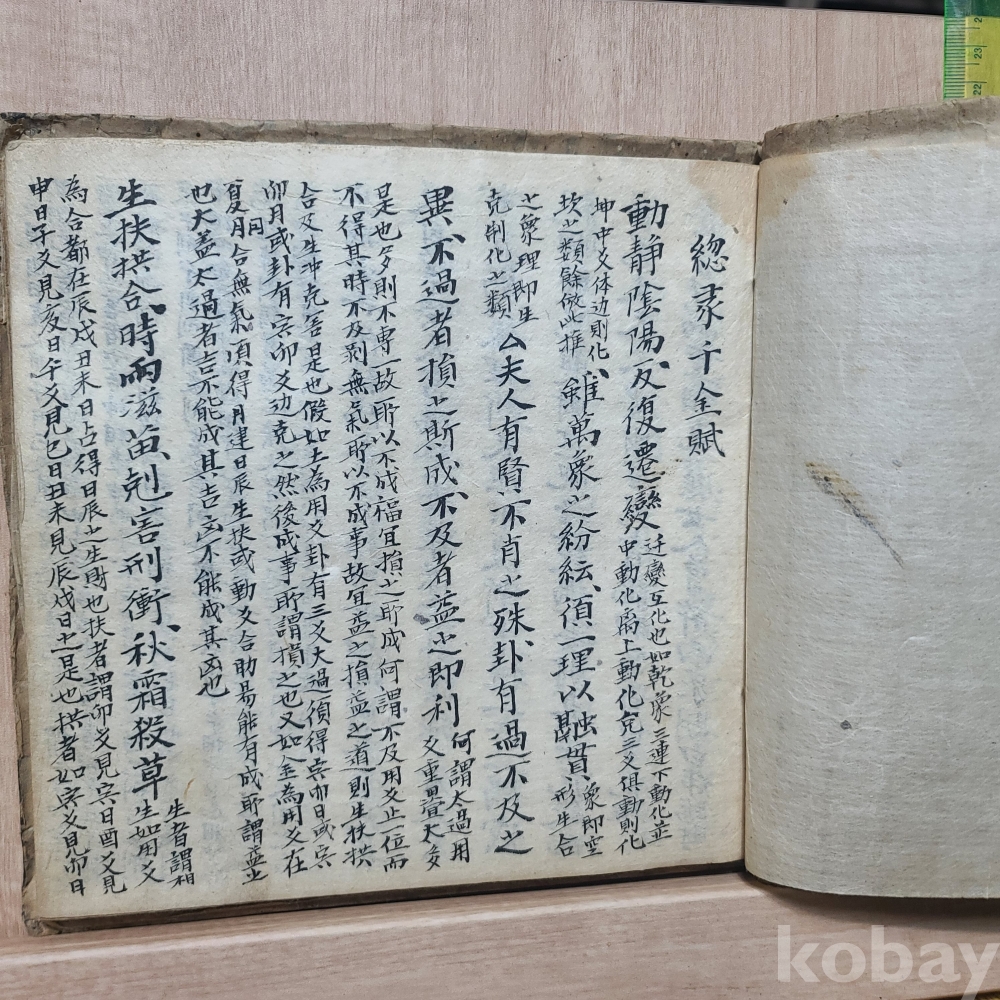 總彖千金賦
動靜陰陽反復遷變
迁變互化也如乾象三連下動化
中動化离上動化兌三爻俱動則化
坤中爻体边則化
坎之類餘倣此推
雖萬象之紛紜須一理以融貫
象即空
形生合
之象理即生
克制化之類
厶夫人有賢不肖之殊卦有過不及之
異不過者損之斯成不及者益之即利
何謂太過用
爻重畳大多
是也多則不專一故所以不成福宜損之所成何謂不及用爻止一位而
不得其時不及剥無氣所以不成事故宜益之損益之道則生扶拱
合及生冲克害是也假如土為用爻卦有三爻大過須得寅卯日或寅
卯月或卦有寅卯爻边克之然後成事所謂損之也又如金為用爻在
夏月占無氣須得月建日辰生扶或動爻合助昜能有成所謂益之
也大盖太過者吉不能成其吉凶不能成其凶也
生扶拱合時雨滋苗剋害刑衝秋霜殺草
生者謂相
生如用爻
為合都在辰戌丑未日占得日辰之生助也扶者謂卯爻見寅日酉爻見
申日子爻見亥日午爻見巳日丑未見辰戌日之是也拱者如寅爻見卯日
22
23
kobay